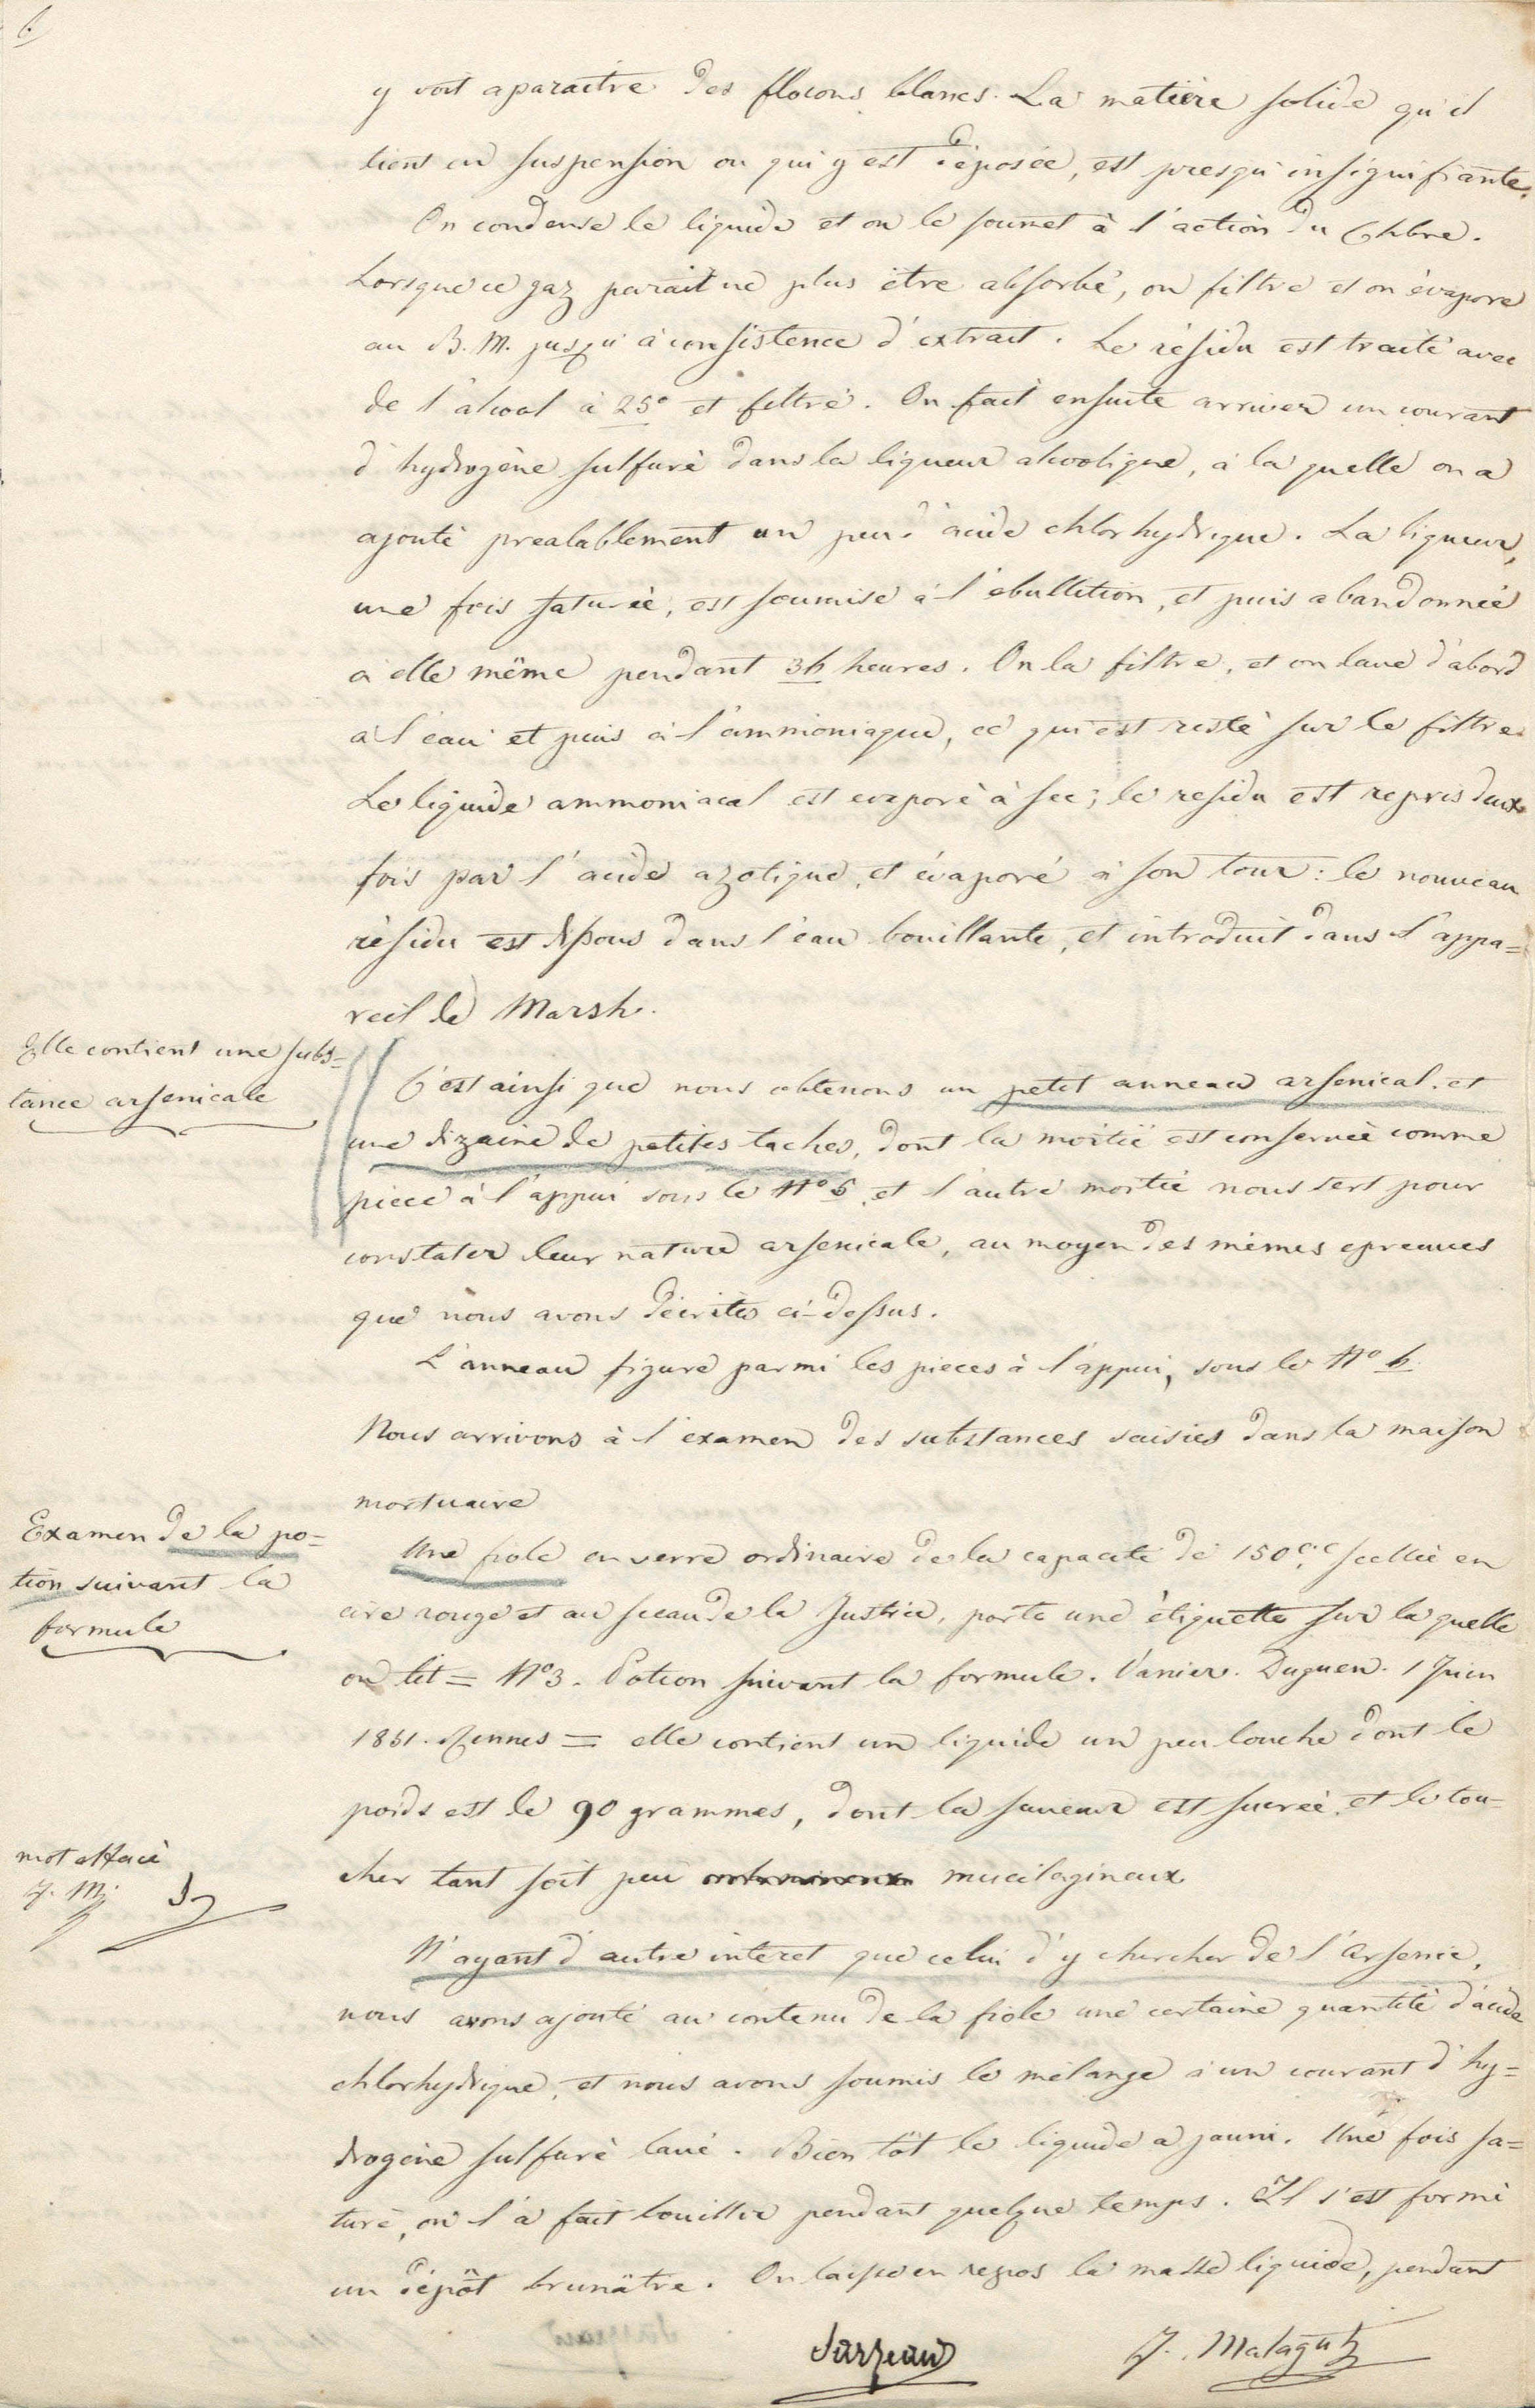 6
y voit aparaitre des flocons blancs. La matière solide qu'il
tient en suspension ou qui y est déposée, est presqu'insignifiante.
On condense le liquide et on le soumet à l'action du Chlore.
Lorsque ce gaz parait ne plus être absorbé, on filtre et on évapore
au B. M. jusqu'à consistence d'extrait. Le résidu est traité avec
de l'alcool à 25° et filtré. On fait ensuite arriver un courant
d'hydrogène sulfuré dans la liqueur alcoolique, à la quelle on a
ajouté prealablement un peu d'acide chlorhydrique. La liqueur,
une fois saturée, est soumise à l'ebullition, et puis abandonnée
à elle même pendant 36 heures. On la filtre, et on lave d'abord
à l'eau et puis à l'ammoniaque, ce qui est resté sur le filtre.
Le liquide ammoniacal est evaporé à sec; le residu est repris deux
fois par l'acide azotique, et évaporé à son tour: le nouveau
résidu est dissous dans l'eau bouillante, et introduit dans l'appa=
reil de Marsh.
Elle contient une subs=
tance arsenicale
C'est ainsi que nous obtenons un petit anneau arsenical, et
une dizaine de petites taches, dont la moitié est conservée comme
piece à l'appui sous le N° 5, et l'autre moitié nous sert pour
constater leur nature arsenicale, au moyen des mêmes epreuves
que nous avons décrites ci-dessus.
L'anneau figure parmi les pieces à l'appui, sous le N° 6.
Nous arrivons à l'examen des substances saisies dans la maison
mortuaire
Examen de la po=
tion suivant la
formule
Une fiole en verre ordinaire de la capacité de 150 c.c scellée en
cire rouge et au sceau de la Justice, porte une étiquette sur la quelle
on lit = N°3. Potion suivant la formule. Vanier. Duguen. 1 Juin
1851. Rennes = elle contient un liquide un peu louche dont le
poids est de 90 grammes, dont la saveur est sucrée, et le tou=
cher tant soit peu mucilagineux
mot effacé
F. M. S
N'ayant d'autre interet que celui d'y chercher de l'Arsenic,
nous avons ajouté au contenu de la fiole une certaine quantité d'acide
chlorhydrique, et nous avons soumis le mélange à un courant d'hy=
drogène sulfuré lavé. Bien tôt le liquide a jauni. Une fois sa=
turé, on l'a fait bouillir pendant quelque temps. Il s'est formé
un dépôt brunâtre. On laisse en repos la masse liquide, pendant
Sarzeau
F. Malaguti